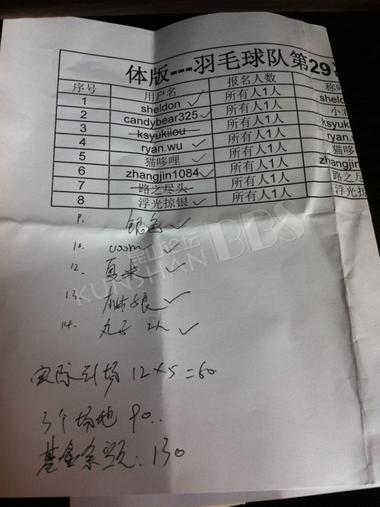 体版---羽毛球队第29
序号 用户名 报名人数 称
1 sheldon 所有人1人
2 candybear325 ✓ 所有人1人 小
3 ksyukiiou 所有人1人
4 ryan.wu ✓ 所有人1人
5 猫哆哩 ✓ 所有人1人 猫
6 zhangjin1084 ✓ 所有人1人
7 路之尽头 所有人1人 路之
8 浮光掠银 ✓ 所有人1人 浮光
9. 银色 ✓
10. uoom ✓
12. 夏末 ✓
13. 娘 ✓
14. 丸子 2人 ✓
昆山论坛
KUNSHAN BBS
实际到场 12×5=60
3个场地 90..
基金余额: 130